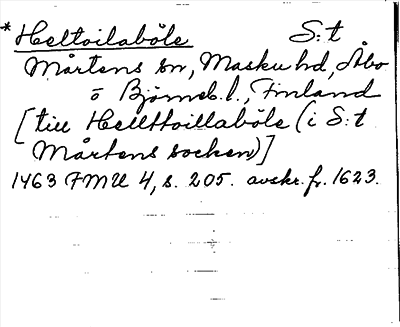 *Heltoilaböle S:t
Mårtens sn, Masku hd, Åbo
o Björneb. l., Finland
[till Hellttoillaböle (i S:t
Mårtens socken)]
1463 FMU 4, s. 205. avskr. fr. 1623.